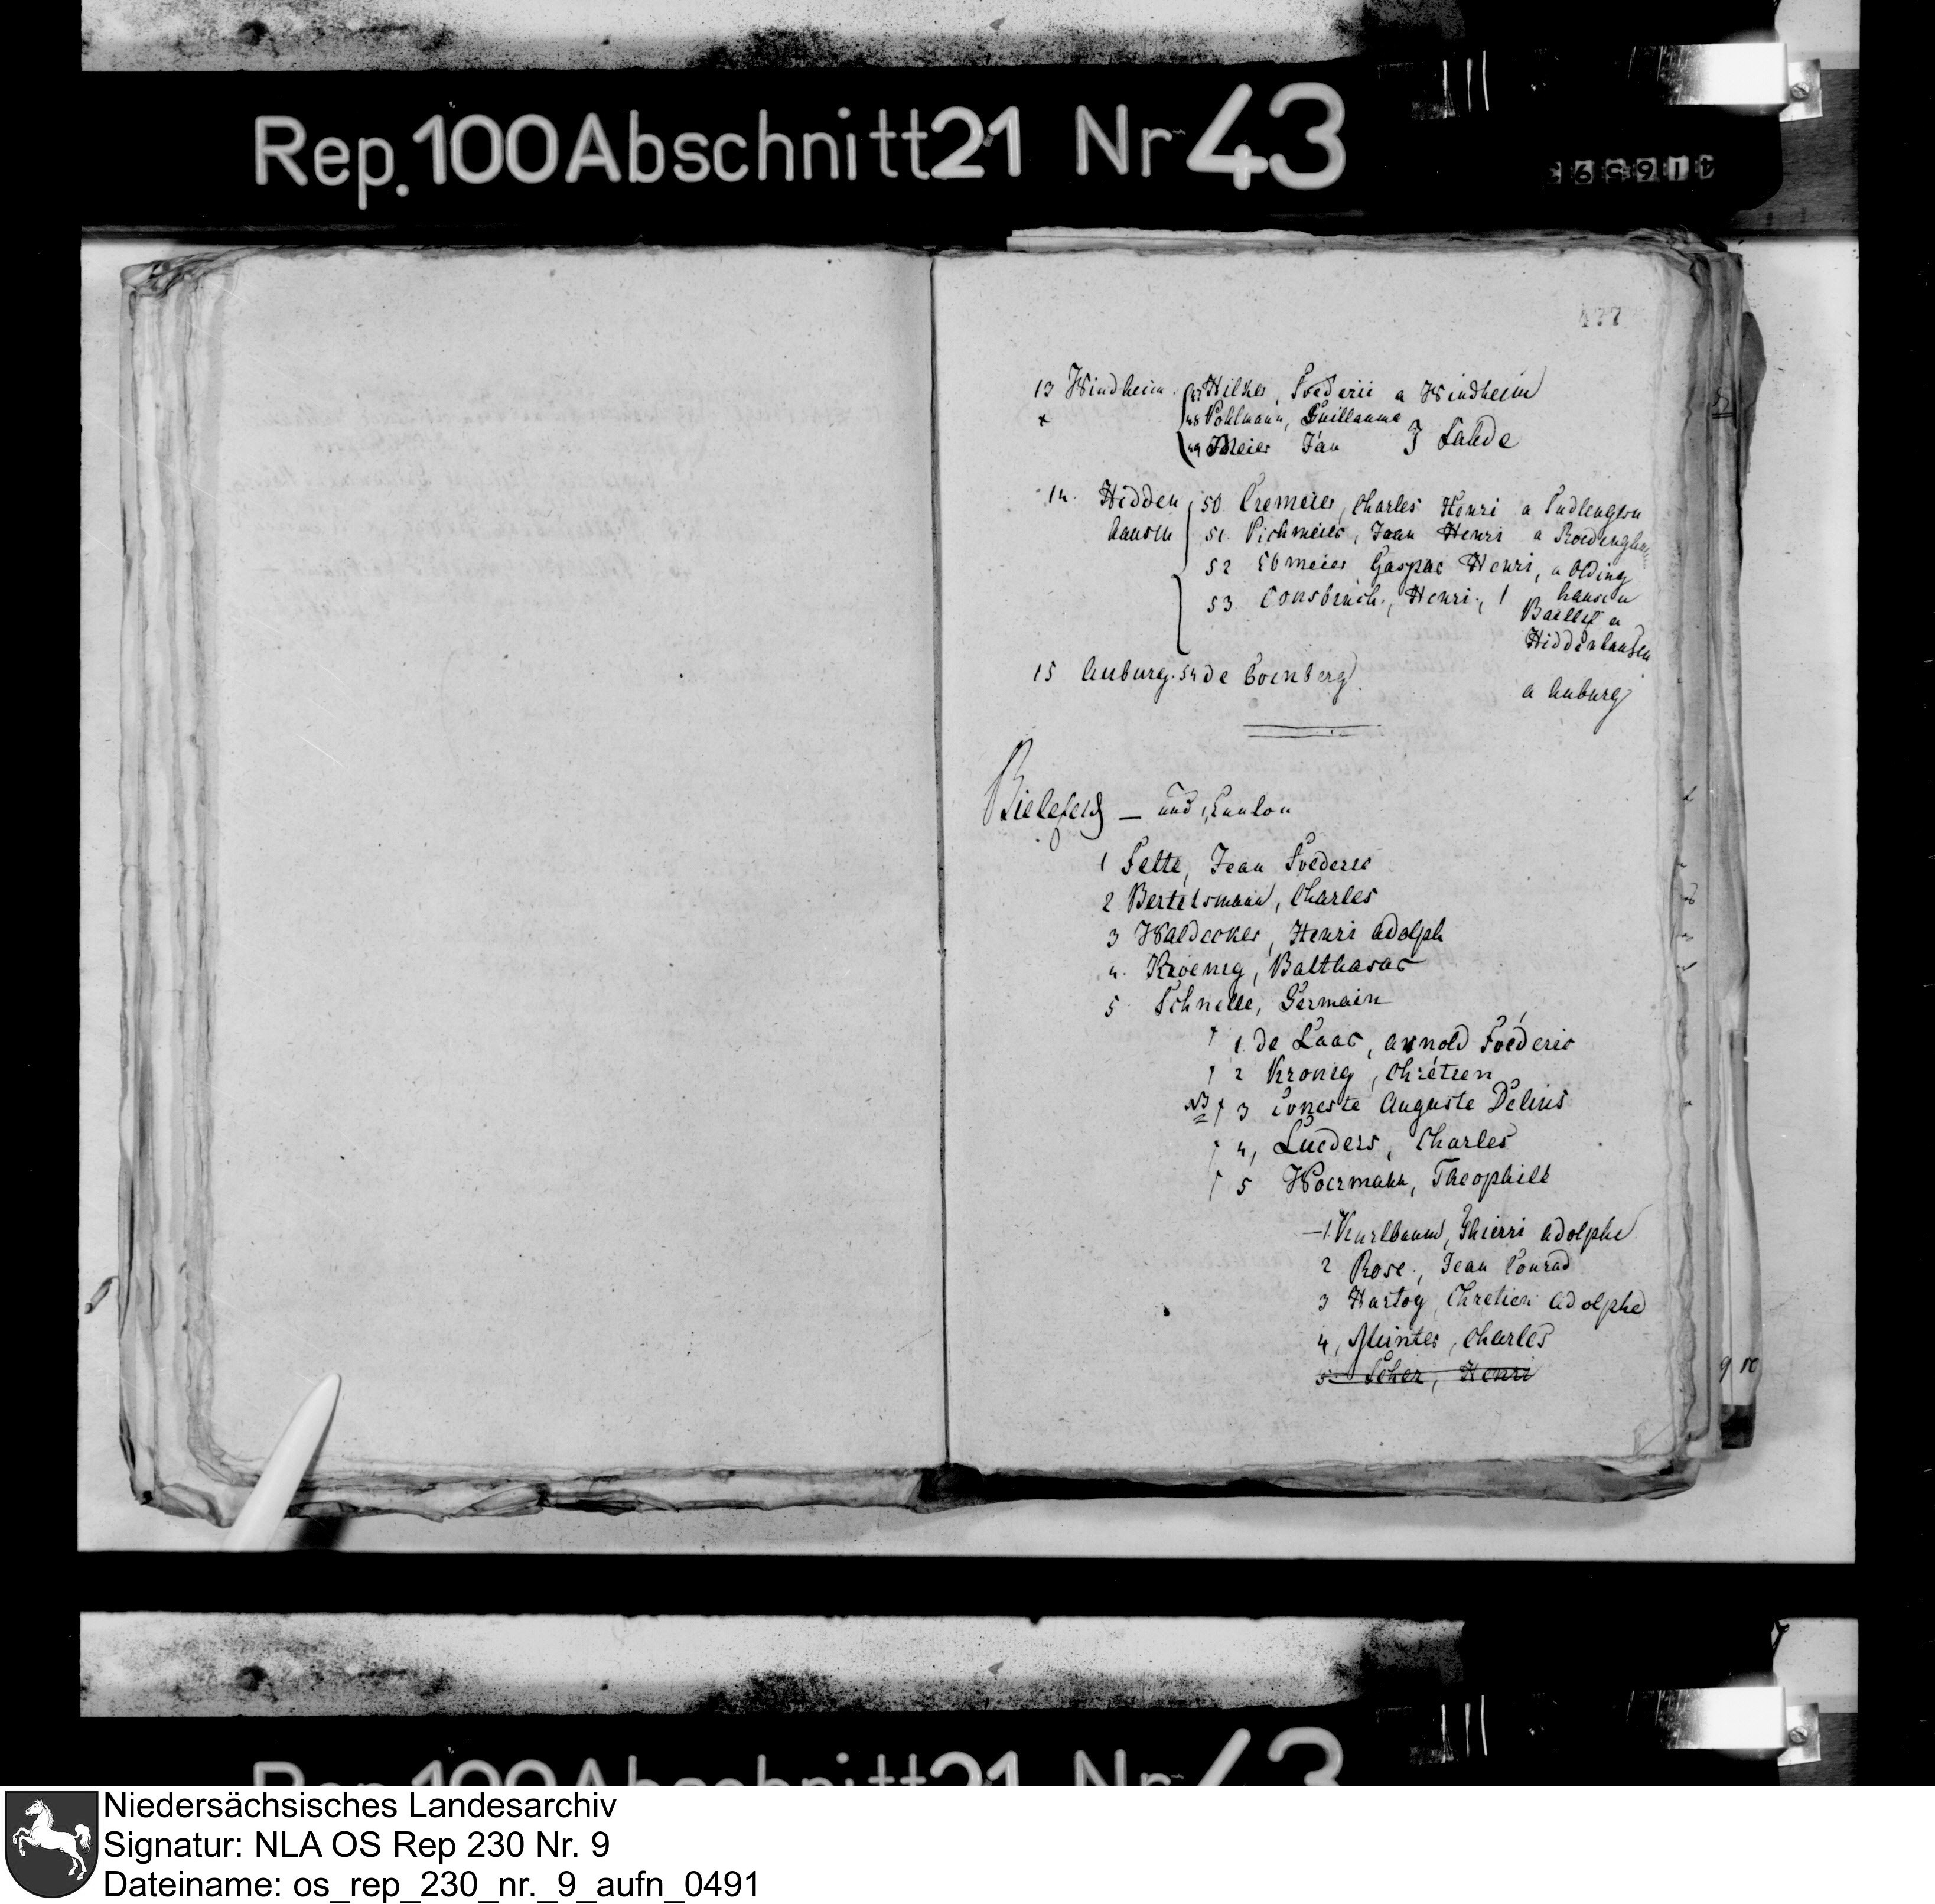 Rep. 100 Abschnitt 21 Nr 43
477
13 Windheim. 47 Hilker, Frederic a Windheim
x 48 Pohlmann, Guillaume
49 Meier Jean } Lahde
14. Hidden 50 Cremeier, Charles Henri a Sudlengern
hausen 51. Pichmeier, Jean Henri a Roedinghausen
52 Ebmeier Gaspar Henri, a Olding
53 Consbruch, Henri, hausen
Baillif a
Hiddenhausen
15 Auburg. 54 de Coenberg
a Auburg
Bielefeld — und Canton
1 Felte, Jean Frederic
2 Bertelsmann, Charles
3 Waldecker, Henri Adolph
4. Kroenig, Balthasar
5 Schnelle, Germain
† 1 de Laar, Arnold Fréderic
† 2 Kronig, Chrétien
NB † 3 Erneste Auguste Delius
† 4, Lueders, Charles
† 5 Woermann, Theophile
— 1 Karlbaum, Thierri Adolphe
2 Rose, Jean Conrad
3 Hartog, Chretien Adolphe
4, Munter, Charles
5 Scher, Henri
9 10
Rep. 100 Abschnitt 21 Nr 43
Niedersächsisches Landesarchiv
Signatur: NLA OS Rep 230 Nr. 9
Dateiname: os_rep_230_nr._9_aufn_0491